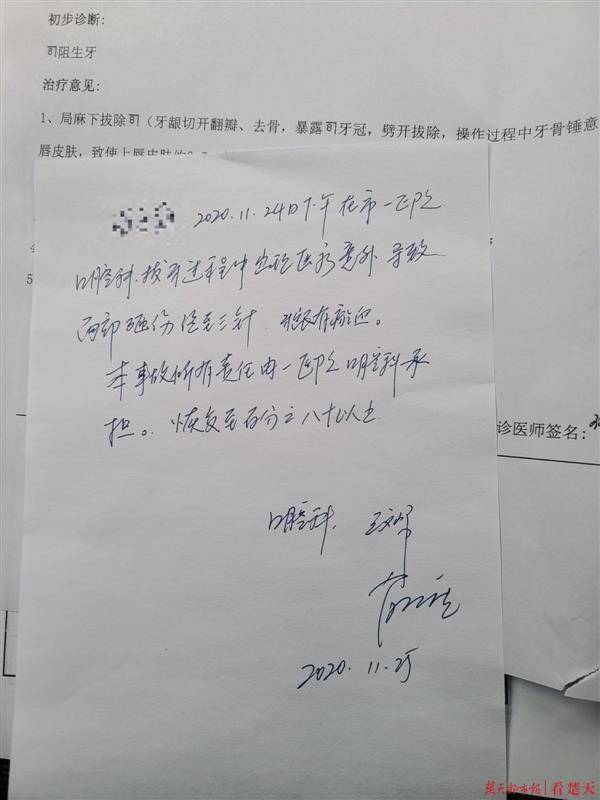 初步诊断:
阻生牙
治疗意见:
1、局麻下拔除(牙龈切开翻瓣、去骨,暴露牙冠,劈开拔除,操作过程中牙骨锤意
唇皮肤,致使上唇皮肤约
4
5
2020.11.24日下午在市一医院
口腔科.拔牙过程中出现医疗意外 导致
面部砸伤缝至三针
本事故所有责任由一医院口腔科承
担。恢复至百分之八十以上
诊医师签名:
口腔科.
2020.11.25
楚天都市报|看楚天